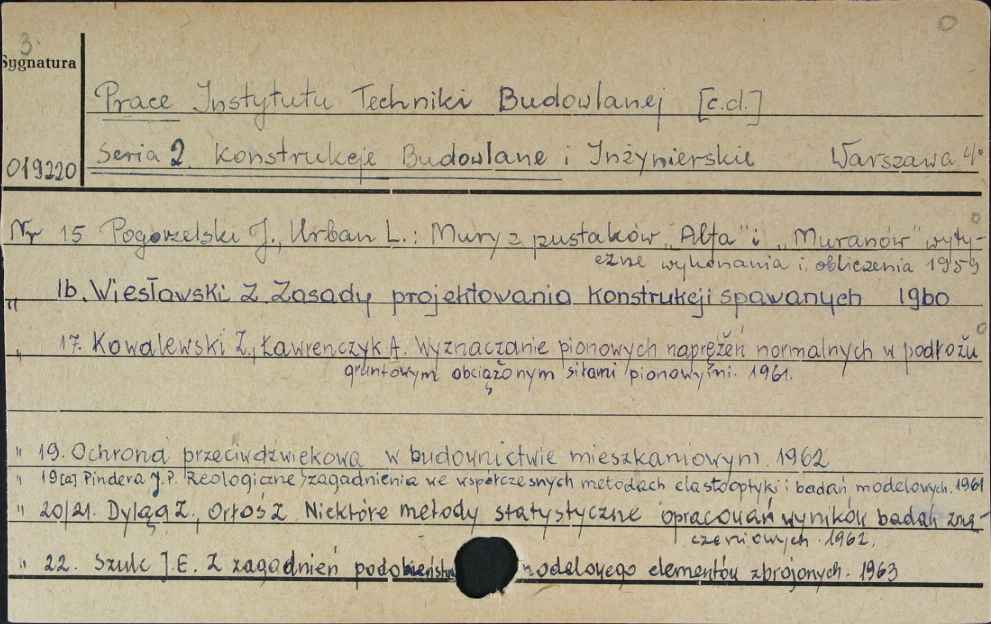 3.
Sygnatura
Prace Instytutu Techniki Budowlanej [c.d.]
019220 Seria 2 Konstrukcje Budowlane i Inżynierskie Warszawa
Nr 15 Pogorzelski J., Urban L.: Mury z pustaków "Alfa" i "Muranów" wyty-
czne wykonania i obliczenia 1959
" 16. Wiesławski Z. Zasady projektowania konstrukcji spawanych 1960
" 17. Kowalewski Z., Ławrenczyk A. Wyznaczanie pionowych naprężeń normalnych w podłożu
gruntowym obciążonym siłami pionowymi. 1961.
" 19. Ochrona przeciwdźwiekowa w budownictwie mieszkaniowym. 1962
" 19[a] Pindera J.P. Reologiczne zagadnienia we współczesnych metodach elastooptyki i badań modelowych. 1961
" 20/21. Dyląg Z., Orłoś Z. Niektóre metody statystyczne opracowań wyników badań zmę-
czeniowych. 1962.
" 22. Szulc J.E. Z zagadnień podobieństwa modelowego elementów zbrojonych. 1963